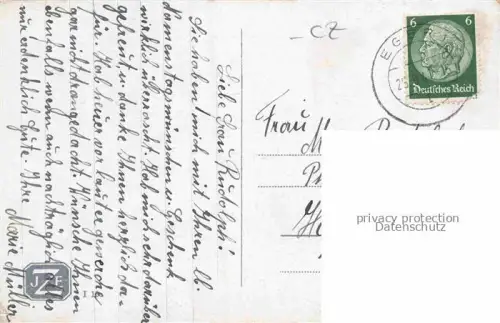 Liebe Frau Rudolph!
Sie haben mich mit Ihren lb.
Namenstagswünschen u. Geschenk
wirklich überrascht. Hab mich sehr darüber
gefreut u. danke Ihnen herzlich da-
für. Hab heuer vor lauter
gar nicht drangedacht. Wünsche Ihnen
ebenfalls wenn auch nachträglich alles
nur denklich Gute Ihre
Marie Müller
- CZ
EG
6 6
Deutsches Reich
Frau
privacy protection
Datenschutz